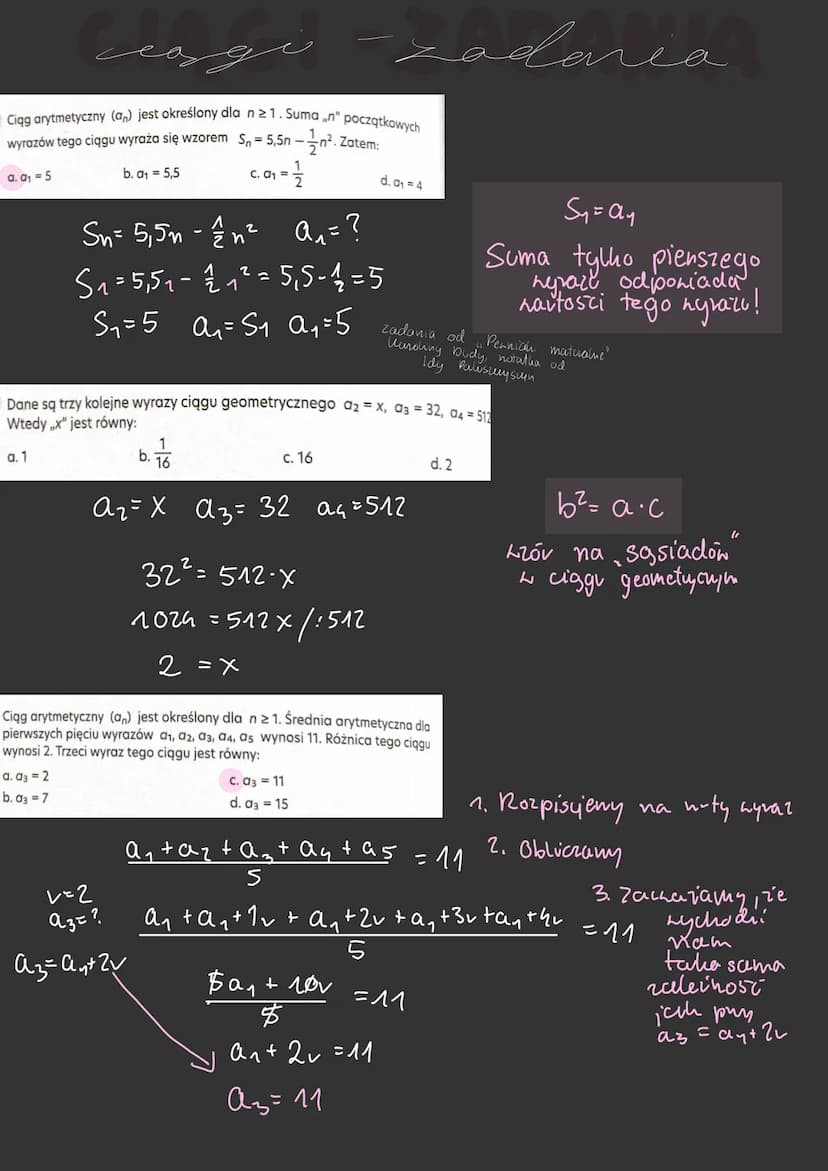 CIĄGI - ZADANIA
ciągi - zadania
Ciąg arytmetyczny (aₙ) jest określony dla n ≥ 1. Suma „n" początkowych
wyrazów tego ciągu wyraża się wzorem Sₙ = 5,5n − 1/2 n². Zatem:
a. a₁ = 5 b. a₁ = 5,5 c. a₁ = 1/2 d. a₁ = 4
Sn = 5,5n - 1/2 n² a₁ = ?
S₁ = 5,5₁ - 1/2 1² = 5,5 - 1/2 = 5
S₁ = 5 a₁ = S₁ a₁ = 5
S₁ = a₁
Suma tylko pierwszego
wyrazu odpowiada
wartości tego wyrazu!
zadania od „Pewniaki maturalne"
Karoliny Dudy, notatka od
Idy
Dane są trzy kolejne wyrazy ciągu geometrycznego a₂ = x, a₃ = 32, a₄ = 512
Wtedy „x" jest równy:
a. 1 b. 1/16 c. 16 d. 2
a₂ = x a₃ = 32 a₄ = 512
32² = 512·x
1024 = 512x /:512
2 = x
b² = a·c
wzór na „sąsiadów"
w ciągu geometrycznym
Ciąg arytmetyczny (aₙ) jest określony dla n ≥ 1. Średnia arytmetyczna dla
pierwszych pięciu wyrazów a₁, a₂, a₃, a₄, a₅ wynosi 11. Różnica tego ciągu
wynosi 2. Trzeci wyraz tego ciągu jest równy:
a. a₃ = 2 c. a₃ = 11
b. a₃ = 7 d. a₃ = 15
1. Rozpisujemy na n-ty wyraz
2. Obliczamy
3. Zauważamy, że
wychodzi
nam
taka sama
zależność
jak przy
a₃ = a₁ + 2r
a₁ + a₂ + a₃ + a₄ + a₅ = 11
5
r = 2
a₃ = ?
a₃ = a₁ + 2r
a₁ + a₁ + 1r + a₁ + 2r + a₁ + 3r + a₁ + 4r = 11
5
5a₁ + 10r = 11
5
a₁ + 2r = 11
a₃ = 11